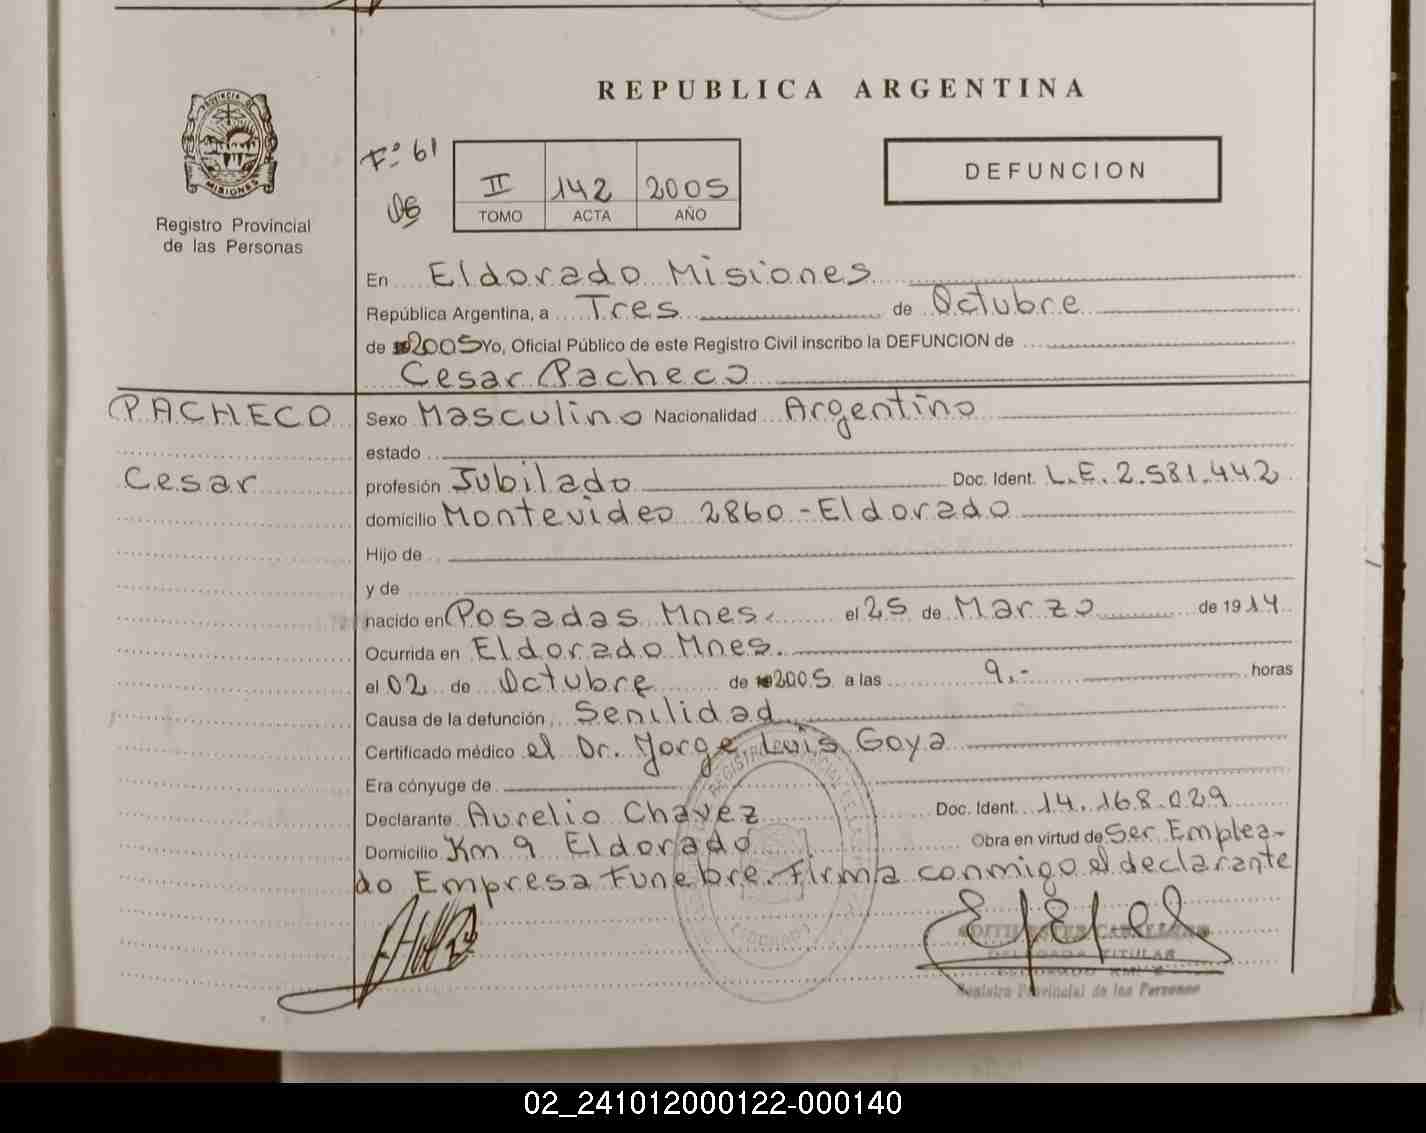 REPUBLICA ARGENTINA
PROVINCIA DE
MISIONES
Registro Provincial
de las Personas
Fº 61
II 142 2005
TOMO ACTA AÑO
DEFUNCION
En Eldorado Misiones
República Argentina, a Tres de Octubre
de 2005 Yo, Oficial Público de este Registro Civil inscribo la DEFUNCION de
Cesar Pacheco
PACHECO
Cesar
Sexo Masculino Nacionalidad Argentino
estado
profesión Jubilado Doc. Ident. L.E. 2.581.442
domicilio Montevideo 2860 - Eldorado
Hijo de
y de
nacido en Posadas Mnes. el 25 de Marzo de 1914
Ocurrida en Eldorado Mnes.
el 02 de Octubre de 2005 a las 9,- horas
Causa de la defunción Senilidad
Certificado médico el Dr. Jorge Luis Goya
Era cónyuge de
Declarante Aurelio Chavez Doc. Ident. 14.168.029
Domicilio Km 9 Eldorado Obra en virtud de Ser Emplea-
do Empresa Funebre. Firma conmigo el declarante
EDITH ESTER CABALLERO
DELEGADA TITULAR
ELDORADO KM.
Registro Provincial de las Personas
02_241012000122-000140